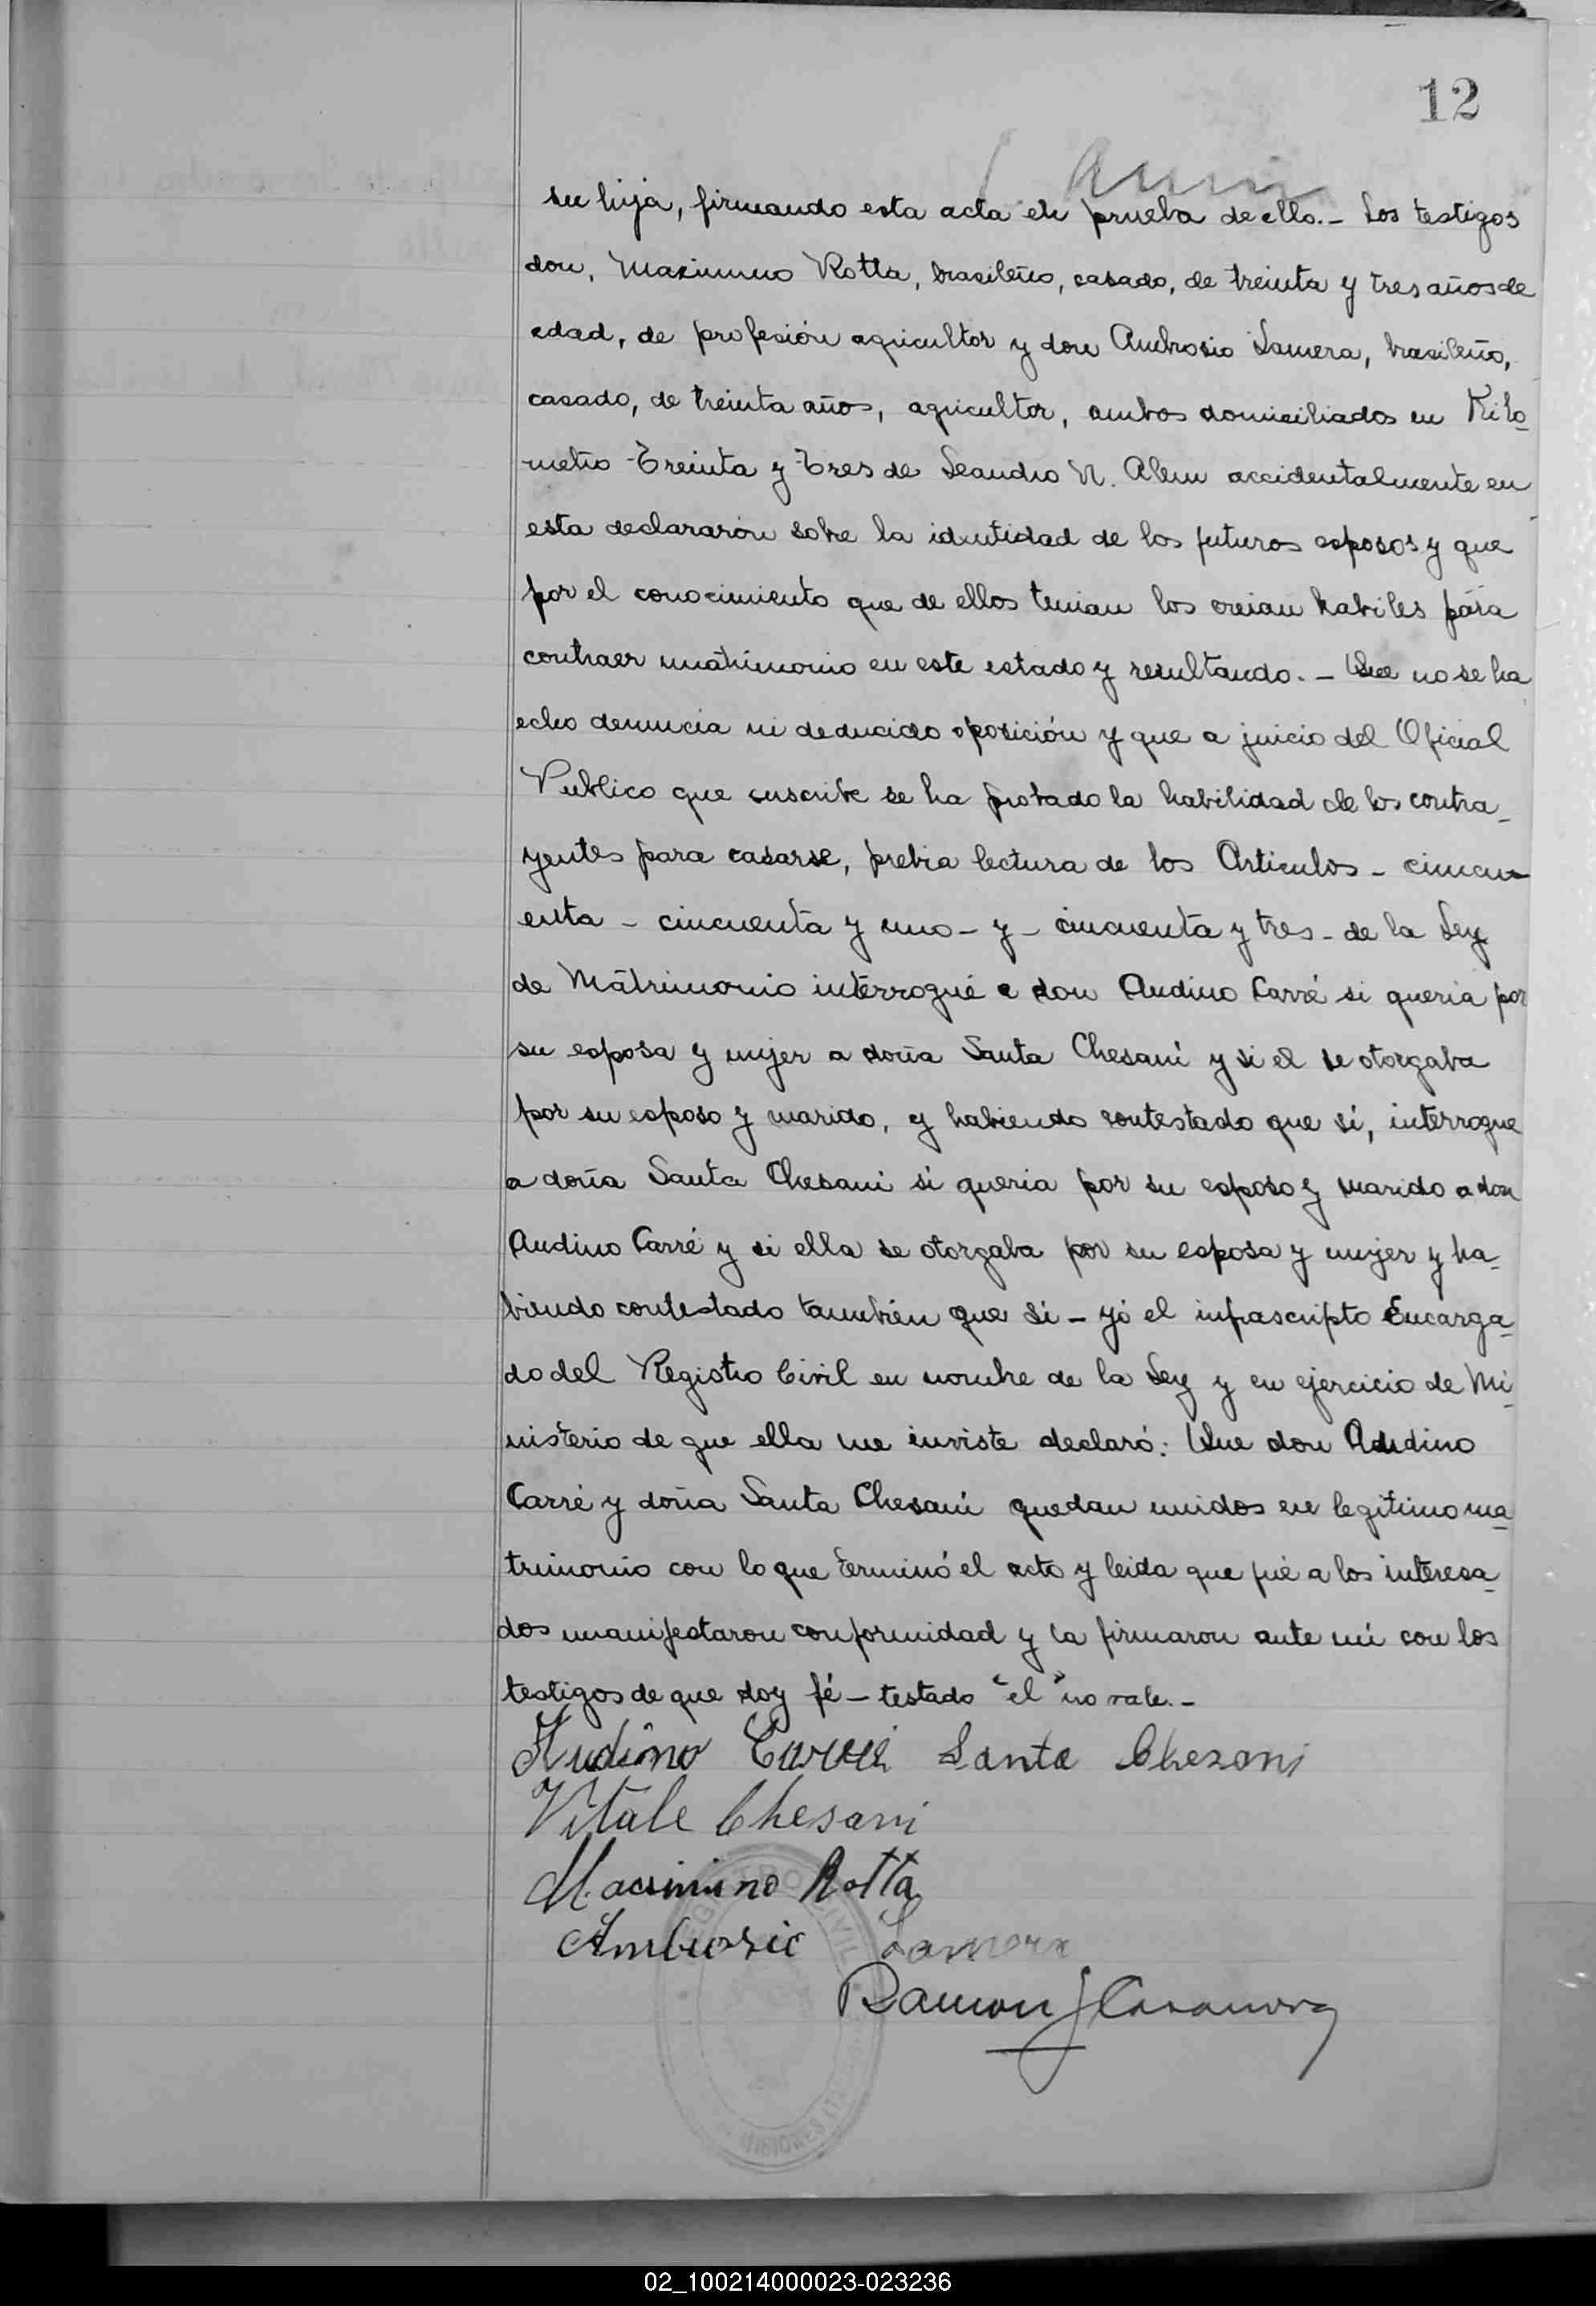 12
su hija, firmando esta acta en prueba de ello.- Los testigos
don, Maximino Rotta, brasileño, casado, de treinta y tres años de
edad, de profesión agricultor y don Ambrosio Lamera, brasileño,
casado, de treinta años, agricultor, ambos domiciliados en Kilo-
metro Treinta y Tres de Leandro N. Alem accidentalmente en
esta declararón sobre la identidad de los futuros esposos y que
por el conocimiento que de ellos tenian los creian habiles para
contraer matrimonio en este estado y resultando.- Que no se ha
echo denuncia ni deducido oposición y que a juicio del Oficial
Publico que suscribe se ha probado la habilidad de los contra-
yentes para casarse, prebia lectura de los Articulos - cincu-
enta - cincuenta y uno - y - cincuenta y tres - de la Ley
de Matrimonio interrogué a don Audino Carré si queria por
su esposa y mujer a doña Santa Chesani y si el se otorgaba
por su esposo y marido, y habiendo contestado que sí, interrogue
a doña Santa Chesani si queria por su esposo y marido a don
Audino Carré y si ella se otorgaba por su esposa y mujer y ha-
biendo contestado también que si - yó el infrascripto Encarga-
do del Registro Civil en nombre de la Ley y en ejercicio de Mi-
nisterio de que ella me inviste declaró: Que don Audino
Carré y doña Santa Chesani quedan unidos en legitimo ma-
trimonio con lo que terminó el acto y leida que fué a los interesa-
dos manifestaron conformidad y la firmaron ante mí con los
testigos de que doy fé - testado "el" no vale.-
Audino Carré Santa Chesani
Vitale Chesani
Macsimino Rotta
Ambrosio Lamera
Ramon J Casanova
REGISTRO CIVIL
MISIONES
02_100214000023-023236